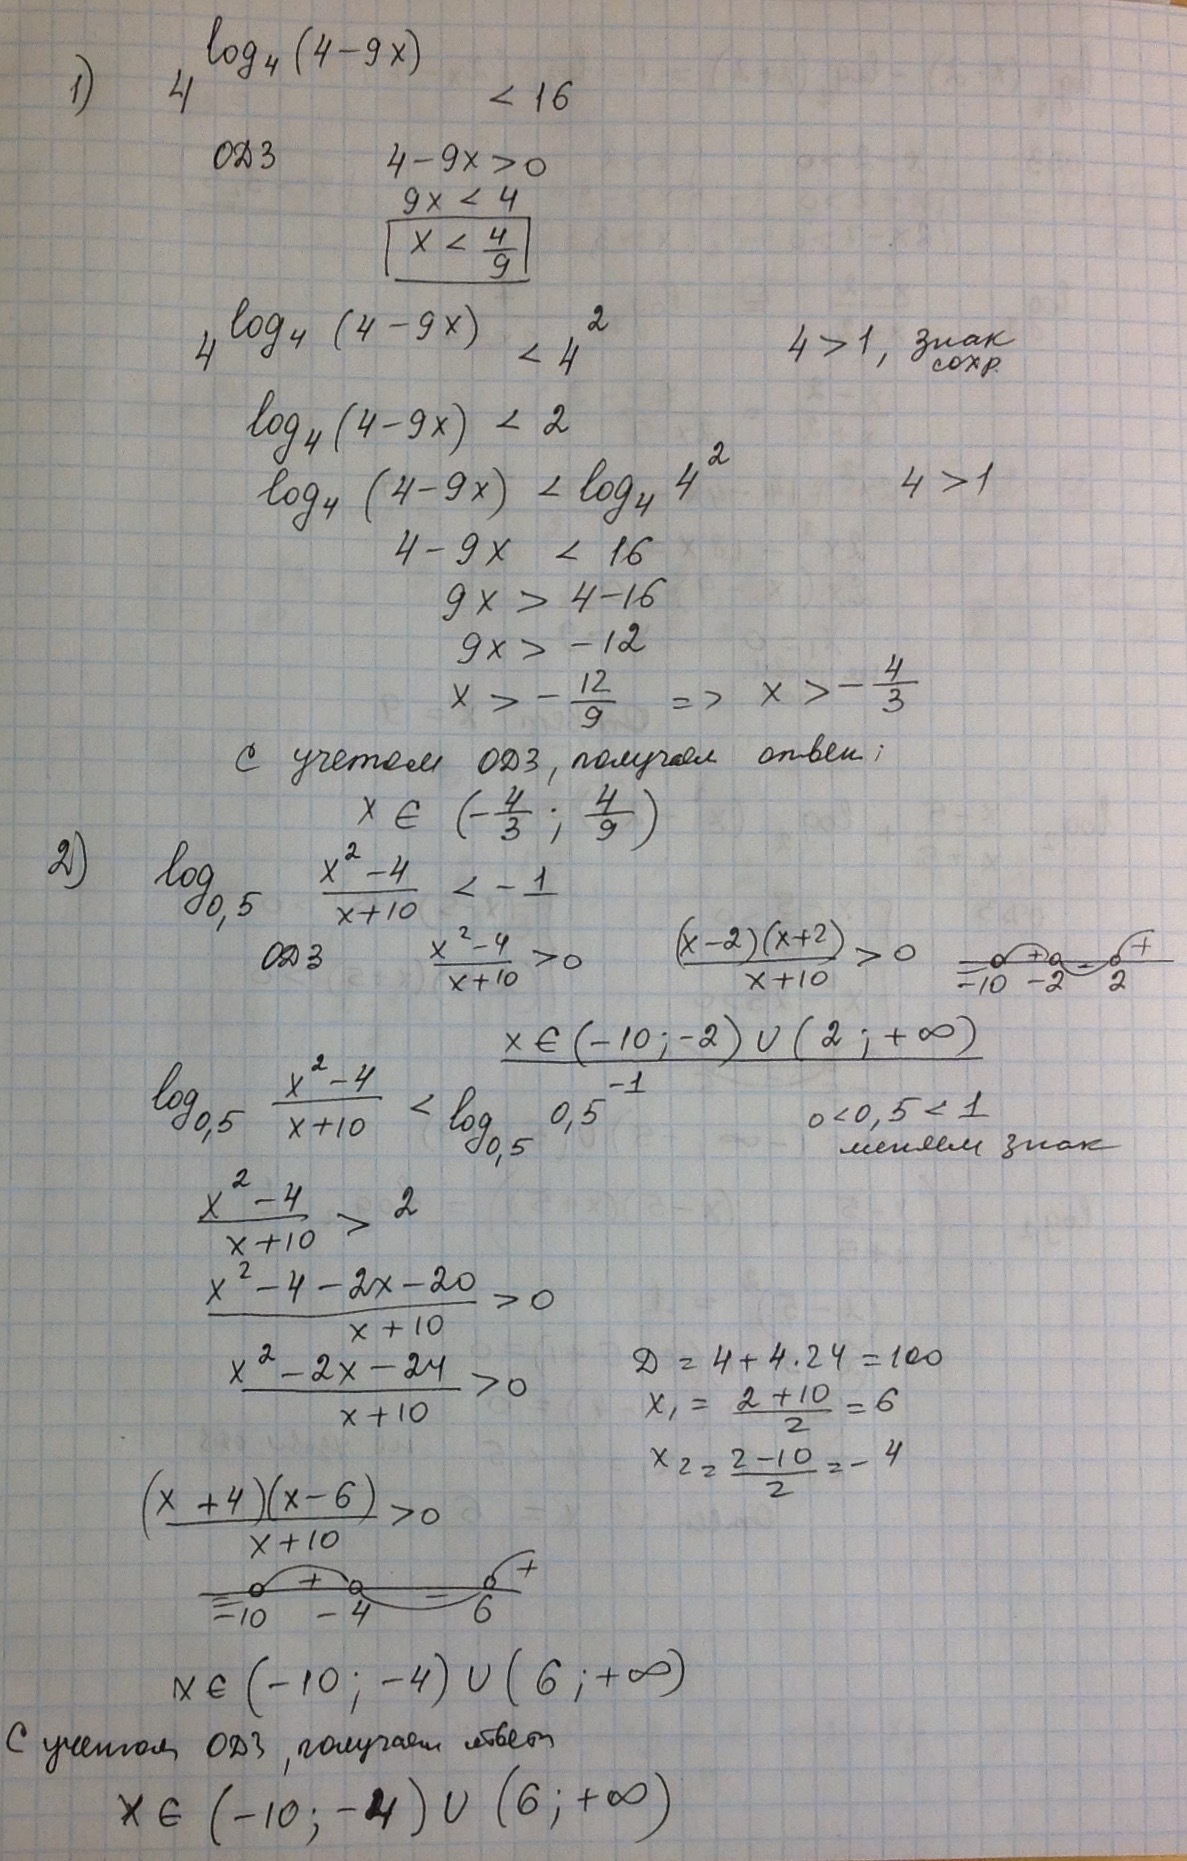 1) 4^(log₄(4-9x)) < 16
ОДЗ 4-9x>0
9x < 4
x < 4/9
4^(log₄(4-9x)) < 4² 4>1, знак сохр.
log₄(4-9x) < 2
log₄(4-9x) < log₄ 4² 4>1
4-9x < 16
9x > 4-16
9x > -12
x > -12/9 => x > -4/3
С учетом ОДЗ, получаем ответ:
x ∈ (-4/3; 4/9)
2) log₀,₅ (x²-4)/(x+10) < -1
ОДЗ (x²-4)/(x+10) > 0 (x-2)(x+2)/(x+10) > 0 - -10 + -2 - 2 +
x ∈ (-10; -2) ∪ (2; +∞)
log₀,₅ (x²-4)/(x+10) < log₀,₅ 0,5⁻¹ 0<0,5<1
меняем знак
(x²-4)/(x+10) > 2
(x²-4-2x-20)/(x+10) > 0
(x²-2x-24)/(x+10) > 0 D = 4+4·24=100
x₁ = (2+10)/2 = 6
x₂ = (2-10)/2 = -4
(x+4)(x-6)/(x+10) > 0
- -10 + -4 - 6 +
x ∈ (-10; -4) ∪ (6; +∞)
С учетом ОДЗ, получаем ответ
x ∈ (-10; -4) ∪ (6; +∞)